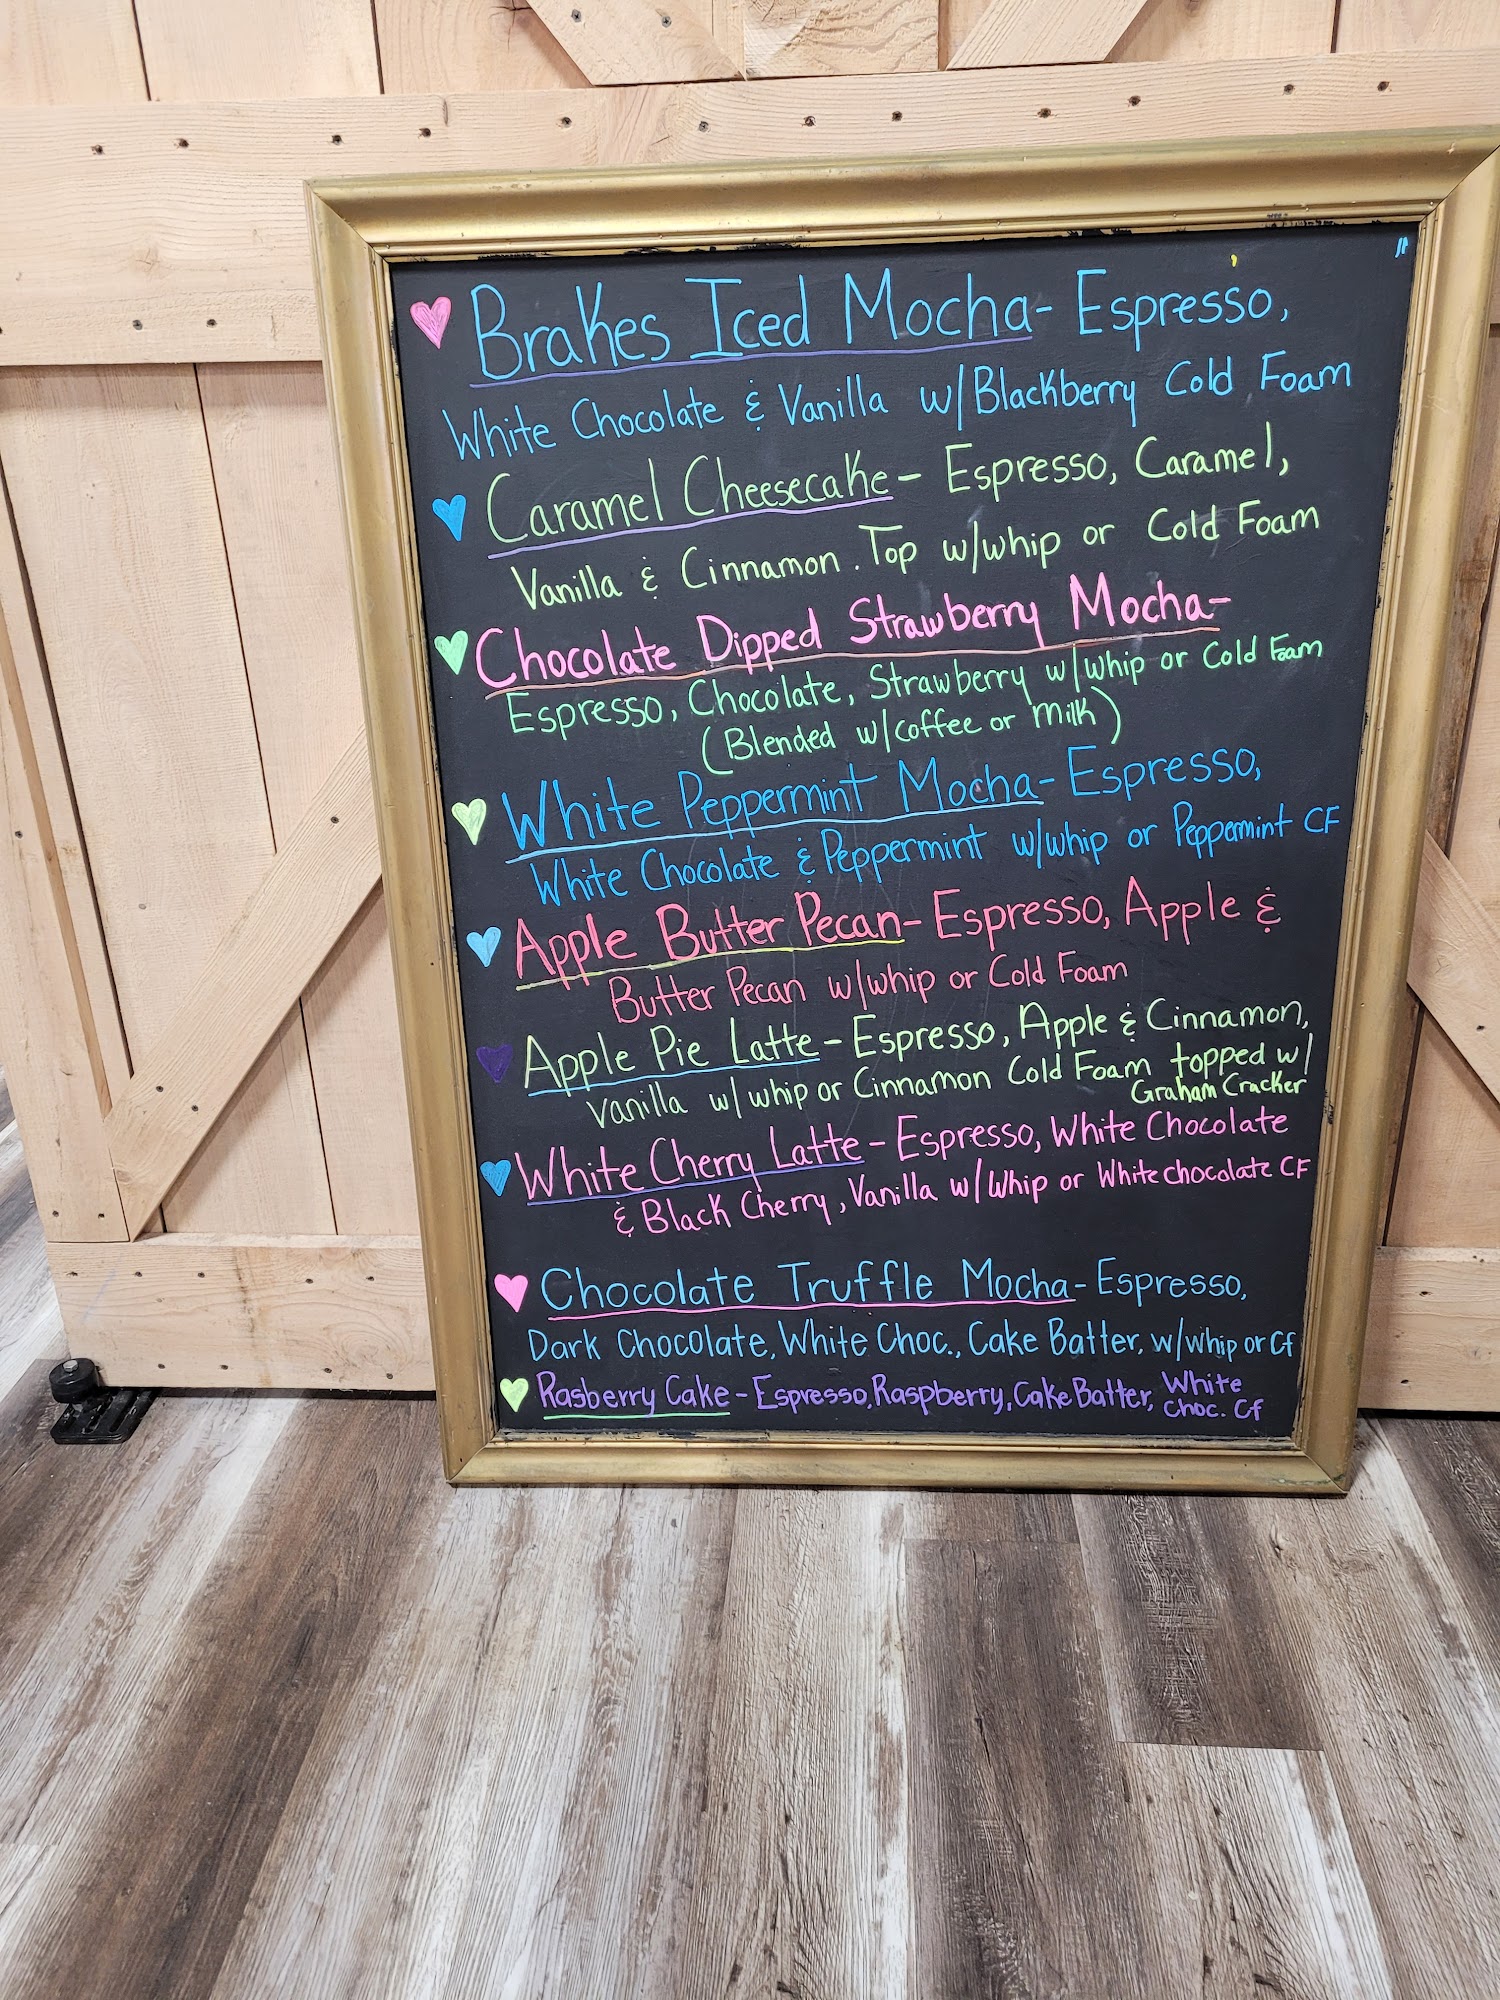 Brakes Iced Mocha- Espresso,
White Chocolate & Vanilla w/Blackberry Cold Foam
Caramel Cheesecake- Espresso, Caramel,
Vanilla & Cinnamon. Top w/whip or Cold Foam
Chocolate Dipped Strawberry Mocha-
Espresso, Chocolate, Strawberry w/whip or Cold Foam
(Blended w/coffee or milk)
White Peppermint Mocha- Espresso,
White Chocolate & Peppermint w/whip or Peppermint CF
Apple Butter Pecan- Espresso, Apple &
Butter Pecan w/whip or Cold Foam
Apple Pie Latte- Espresso, Apple & Cinnamon,
Vanilla w/whip or Cinnamon Cold Foam topped w/
Graham Cracker
White Cherry Latte- Espresso, White Chocolate
& Black Cherry, Vanilla w/Whip or White chocolate CF
Chocolate Truffle Mocha- Espresso,
Dark Chocolate, White Choc., Cake Batter, w/whip or Cf
Rasberry Cake- Espresso, Raspberry, Cake Batter, White
Choc. Cf